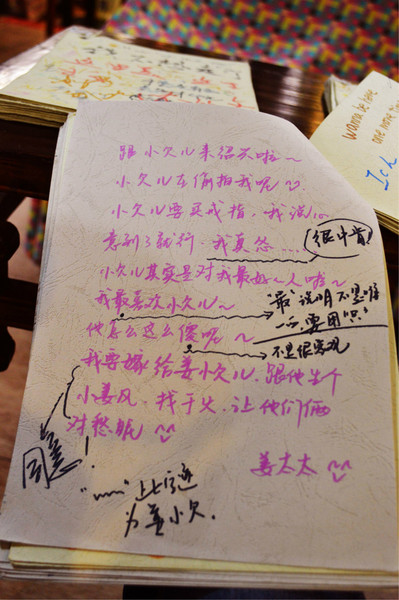 跟小久儿来绍兴啦~
小久儿在偷拍我呢
小久儿要买戒指，我说心
意到了就行，我真怂....
(很中肯)
小久儿其实是对我最好的人啦~
我最喜欢小久儿~
"最"说明不是唯
一，要用"只"
他怎么这么傻呢~
不是很客观
我要嫁给姜小久儿，跟他生个
小姜风，找干火，让他们俩
对整呢
同意!
姜太太
"﹏"上处
为姜小久.
Wanna be
one more
Ich